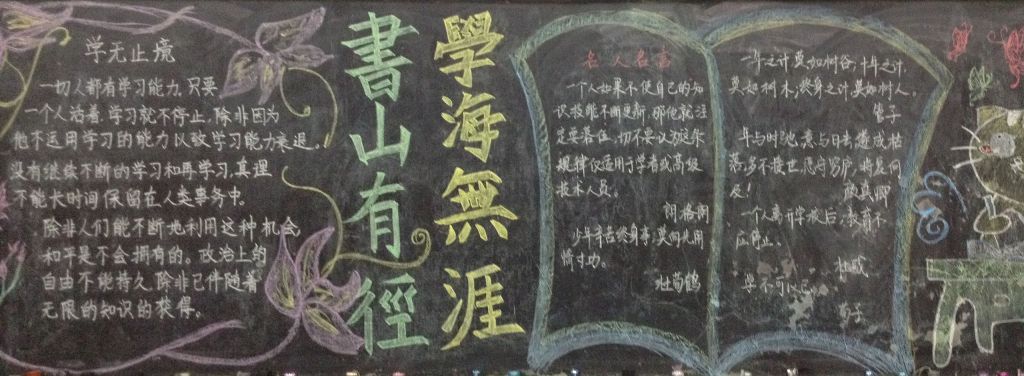 学无止境
一切人都有学习能力,只要
一个人活着,学习就不停止,除非因为
他不运用学习的能力以致学习能力衰退。
没有继续不断的学习和再学习,真理
不能长时间保留在人类事务中。
除非人们能不断地利用这种机会,
和平是不会拥有的。政治上的
自由不能持久,除非它伴随着
无限的知识的获得。
書山有徑
學海無涯
名人名言
一个人如果不使自己的知
识技能不断更新,那他就注
定要落伍,一切不要以为这条
规律仅适用于学者或高级
技术人员。
朗格朗
少年辛苦终身事,莫向光阴
惰寸功。
杜荀鹤
一年之计莫如树谷,十年之计
莫如树木,终身之计莫如树人。
管子
年与时驰,意与日去,遂成枯
落,多不接世,悲守穷庐,将复何
及!
一个人离开学校后,教育不
应停止。
杜威
学不可以已。
荀子